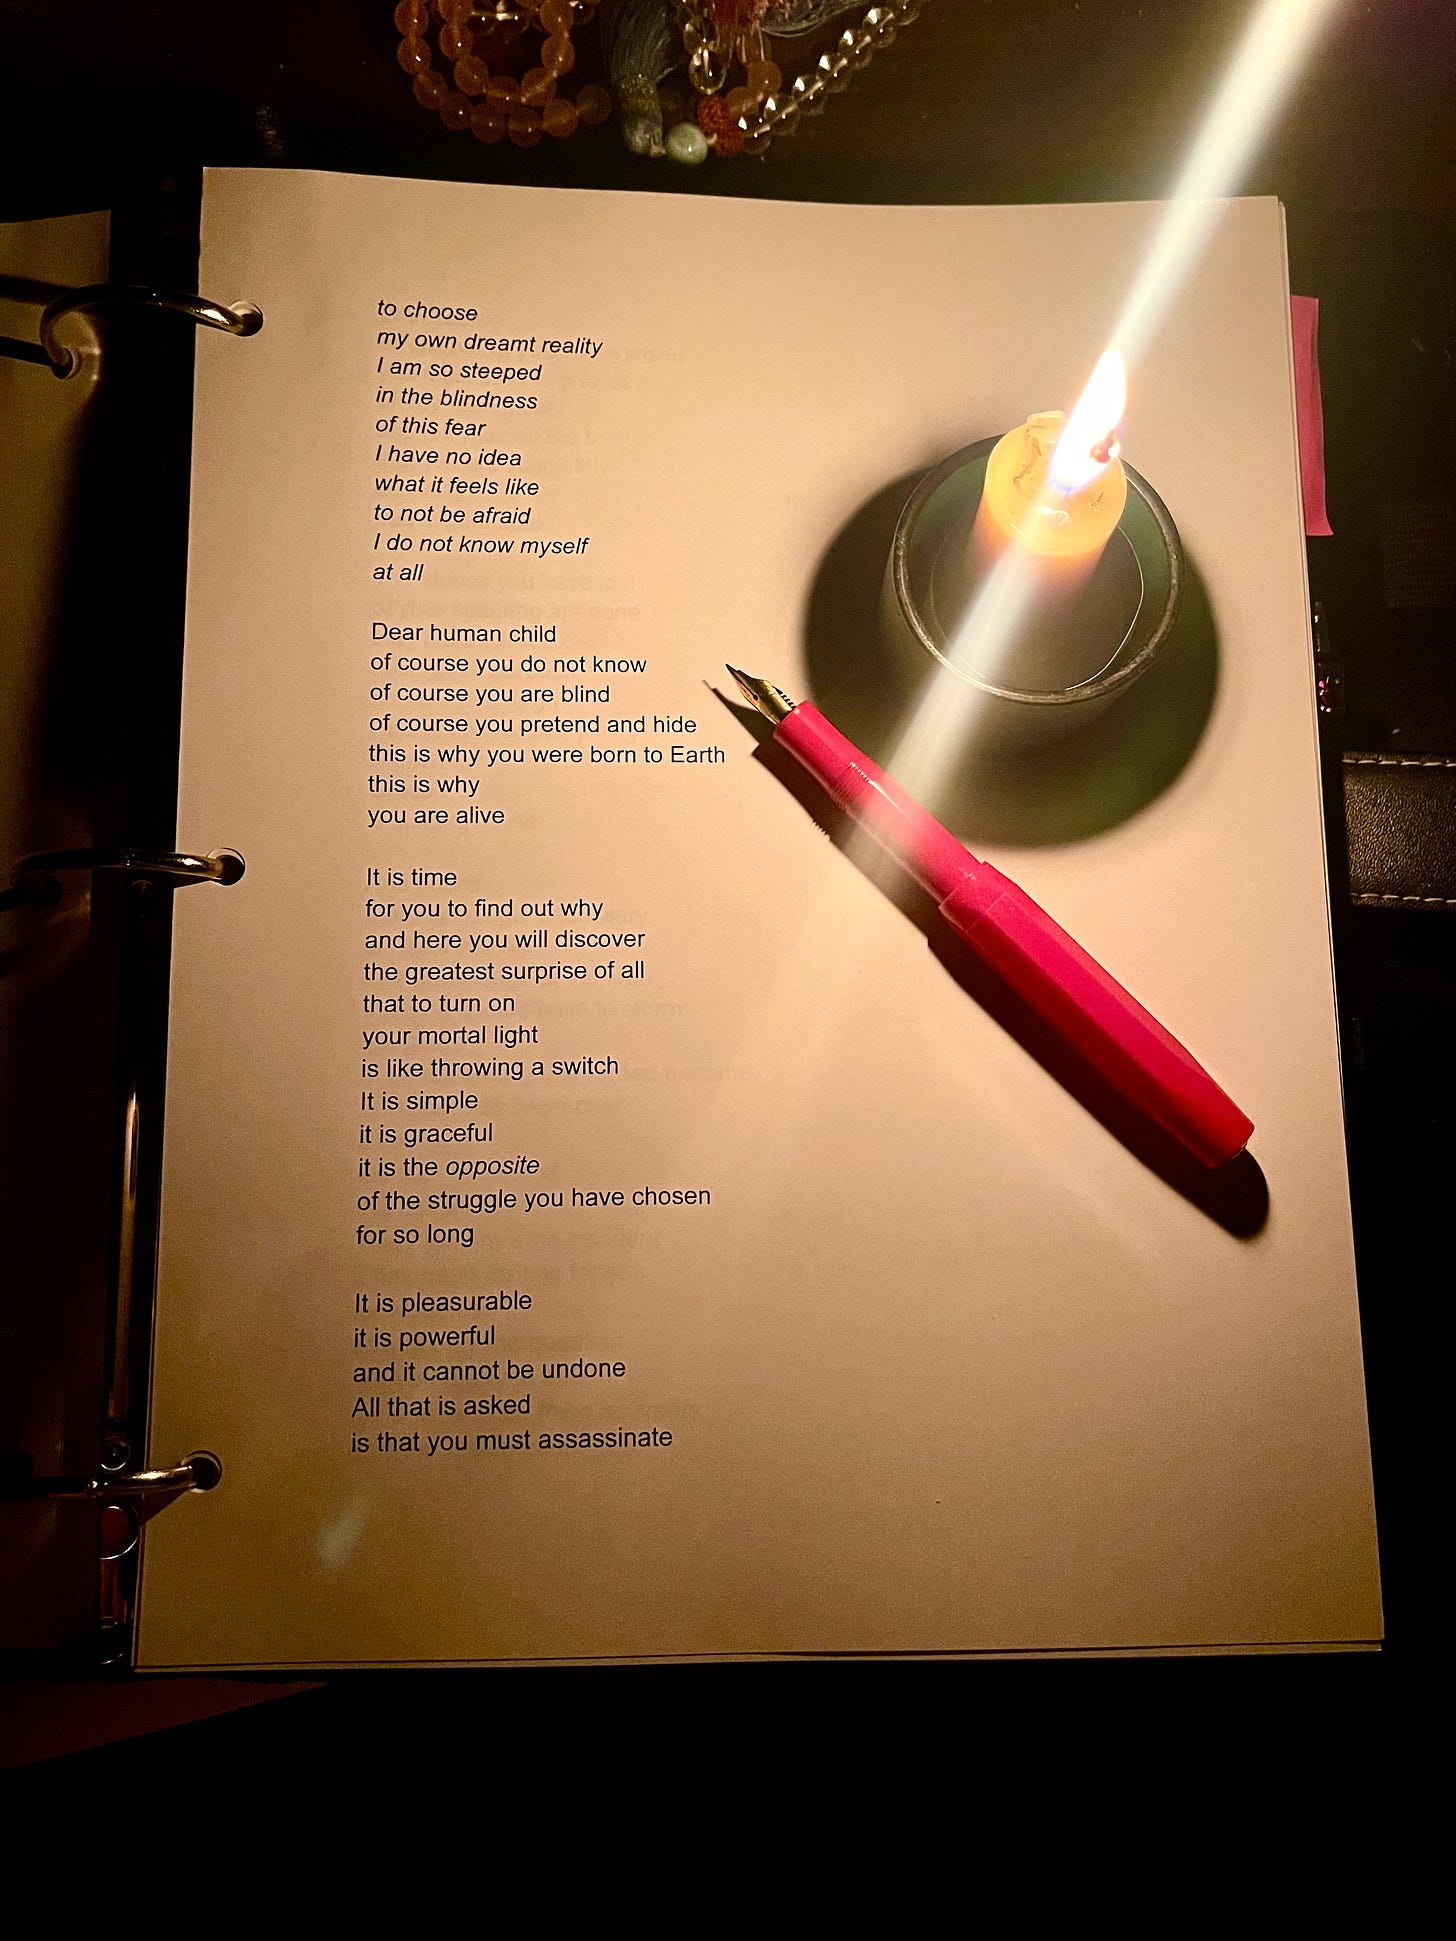 to choose
my own dreamt reality
I am so steeped
in the blindness
of this fear
I have no idea
what it feels like
to not be afraid
I do not know myself
at all
Dear human child
of course you do not know
of course you are blind
of course you pretend and hide
this is why you were born to Earth
this is why
you are alive
It is time
for you to find out why
and here you will discover
the greatest surprise of all
that to turn on
your mortal light
is like throwing a switch
It is simple
it is graceful
it is the opposite
of the struggle you have chosen
for so long
It is pleasurable
it is powerful
and it cannot be undone
All that is asked
is that you must assassinate